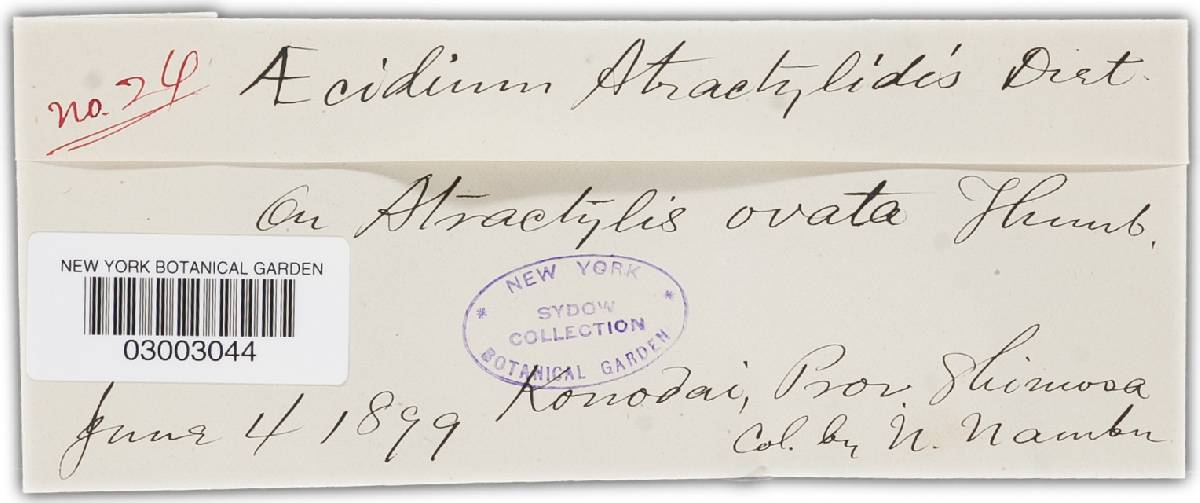 no. 24
Æcidium Atractylidis Diet.
On Atractylis ovata Thunb.
NEW YORK BOTANICAL GARDEN
03003044
NEW YORK
* SYDOW *
COLLECTION
BOTANICAL GARDEN
Konodai, Prov. Shimosa
June 4 1899
Col. by N. Nambu